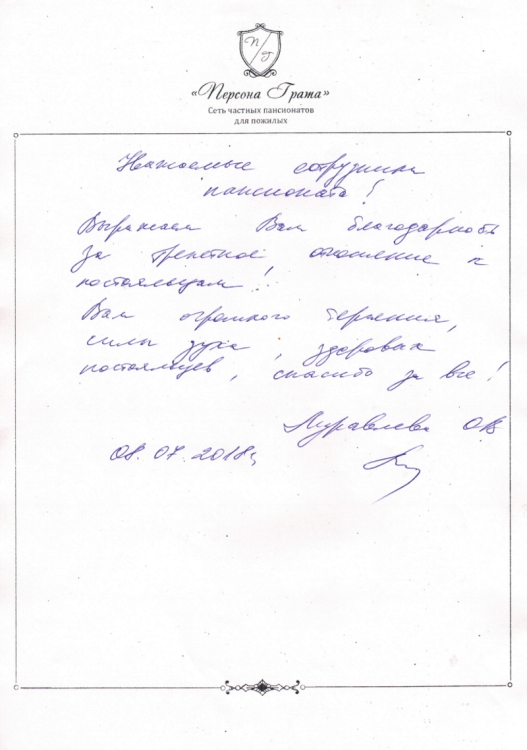 П/Г
«Персона Грата»
Сеть частных пансионатов
для пожилых
Уважаемые сотрудники
пансионата!
Выражаем Вам благодарность
за трепетное отношение к
постояльцам!
Вам огромного терпения,
силы духа, здоровых
постояльцев, спасибо за все!
Муравлева ОВ
08.07.2018г